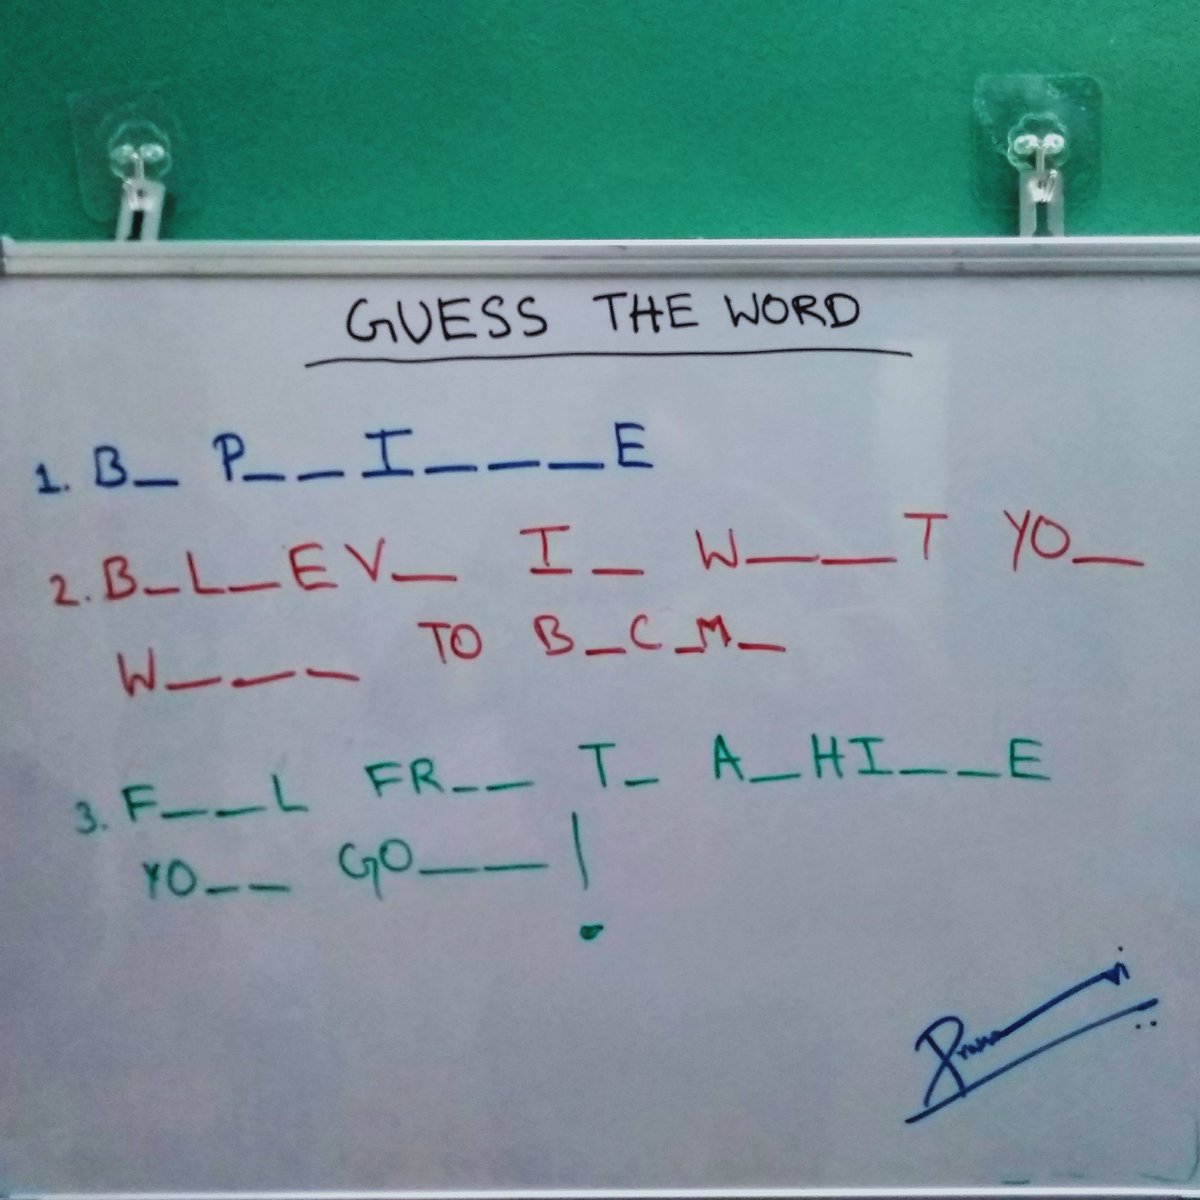 GUESS THE WORD
1. B_ P__I___E
2. B_L_EV_ I_ W___T YO_
W___ TO B_C_M_
3. F__L FR__ T_ A_HI__E
YO__ GO___!